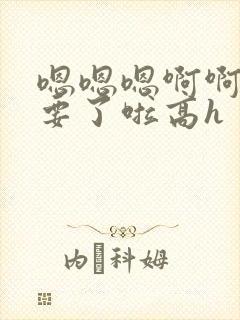 嗯嗯嗯啊啊
要了啦高h
内 科姆